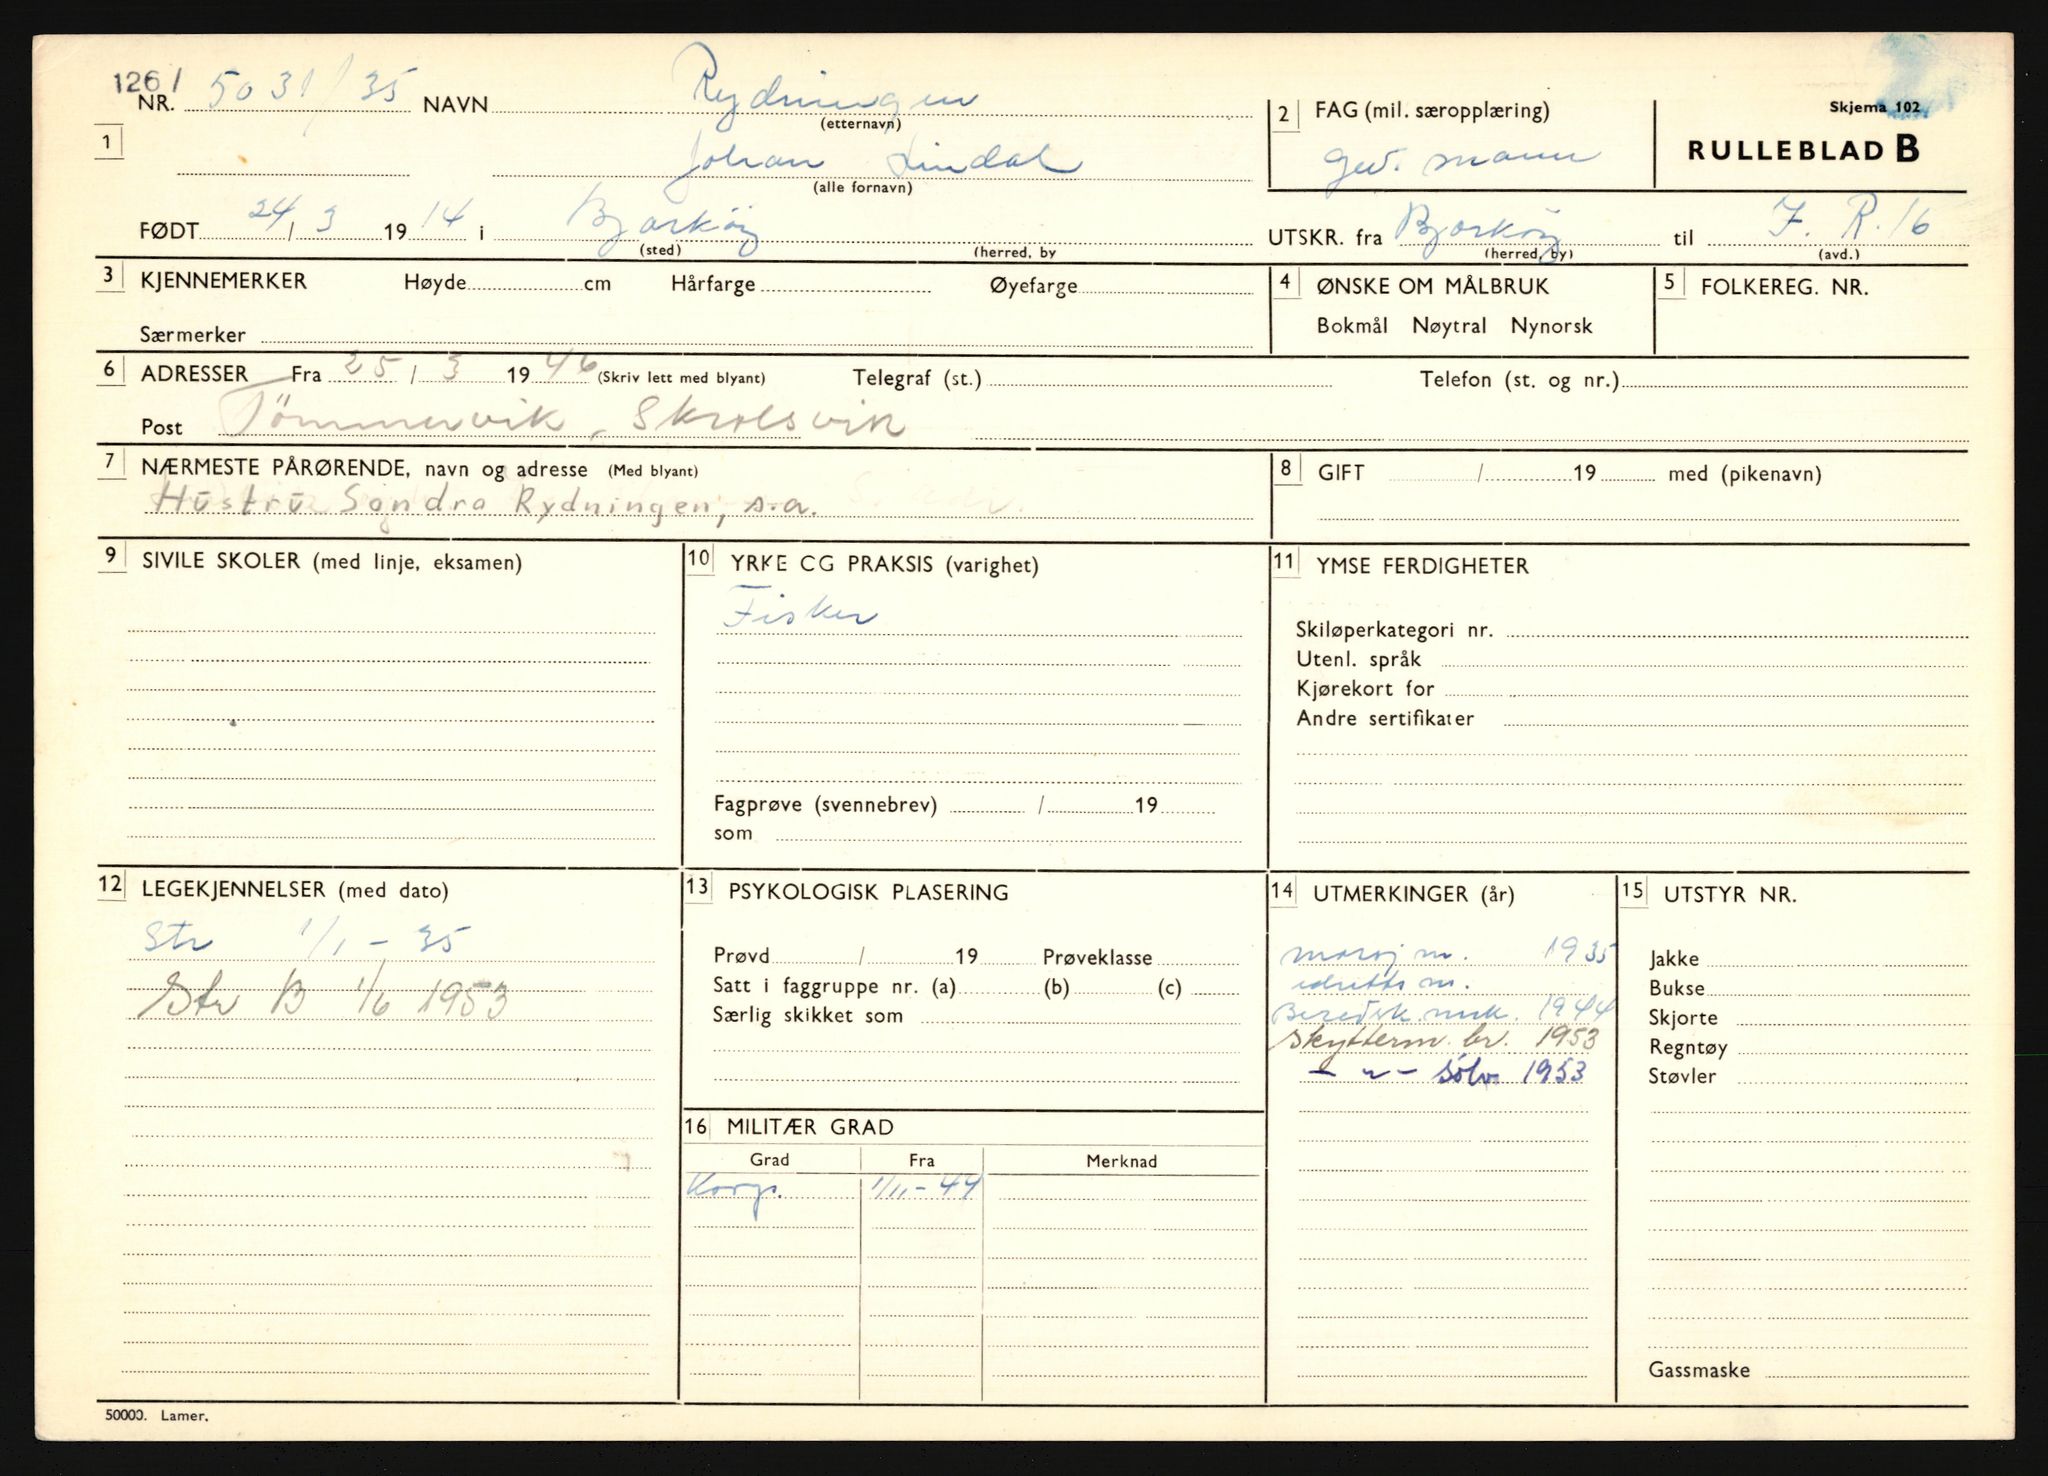 1261
NR. 5031/35 NAVN Rydningen
(etternavn)
1
Johan Lindal
(alle fornavn)
2 FAG (mil. særopplæring)
gev. mann
Skjema 102
RULLEBLAD B
FØDT 24/3 1914 i Bjarkøy
(sted) (herred, by
UTSKR. fra Bjarkøy til I. R. 16
(herred, by) (avd.)
3 KJENNEMERKER Høyde cm Hårfarge Øyefarge
Særmerker
4 ØNSKE OM MÅLBRUK
Bokmål Nøytral Nynorsk
5 FOLKEREG. NR.
6 ADRESSER Fra 25/3 1946 (Skriv lett med blyant) Telegraf (st.) Telefon (st. og nr.)
Post Tömmervik, Skrolsvik
7 NÆRMESTE PÅRØRENDE, navn og adresse (Med blyant)
Hustru Sandra Rydningen, s.a.
8 GIFT / 19 med (pikenavn)
9 SIVILE SKOLER (med linje, eksamen)
10 YRKE CG PRAKSIS (varighet)
Fisker
Fagprøve (svennebrev) / 19
som
11 YMSE FERDIGHETER
Skiløperkategori nr.
Utenl. språk
Kjørekort for
Andre sertifikater
12 LEGEKJENNELSER (med dato)
Str 1/1 - 35
Str B 1/6 1953
13 PSYKOLOGISK PLASERING
Prøvd / 19 Prøveklasse
Satt i faggruppe nr. (a) (b) (c)
Særlig skikket som
14 UTMERKINGER (år)
marsj m. 1935
idretts m.
Beredsk. merk. 1944
Skytterm. br. 1953
- " - Sølv 1953
15 UTSTYR NR.
Jakke
Bukse
Skjorte
Regntøy
Støvler
Gassmaske
16 MILITÆR GRAD
Grad Fra Merknad
Korp. 1/11-44
50000. Lamer.